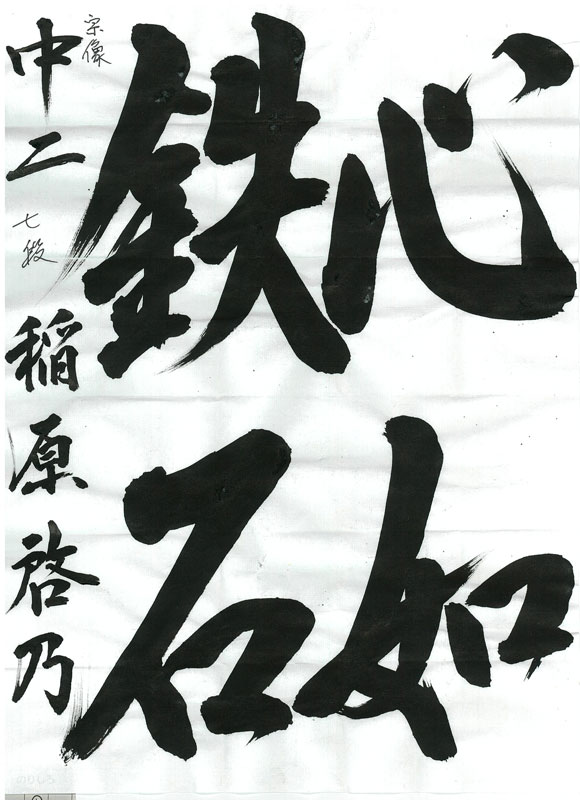 心如
鉄石
宗像
中二 七段 稲原啓乃